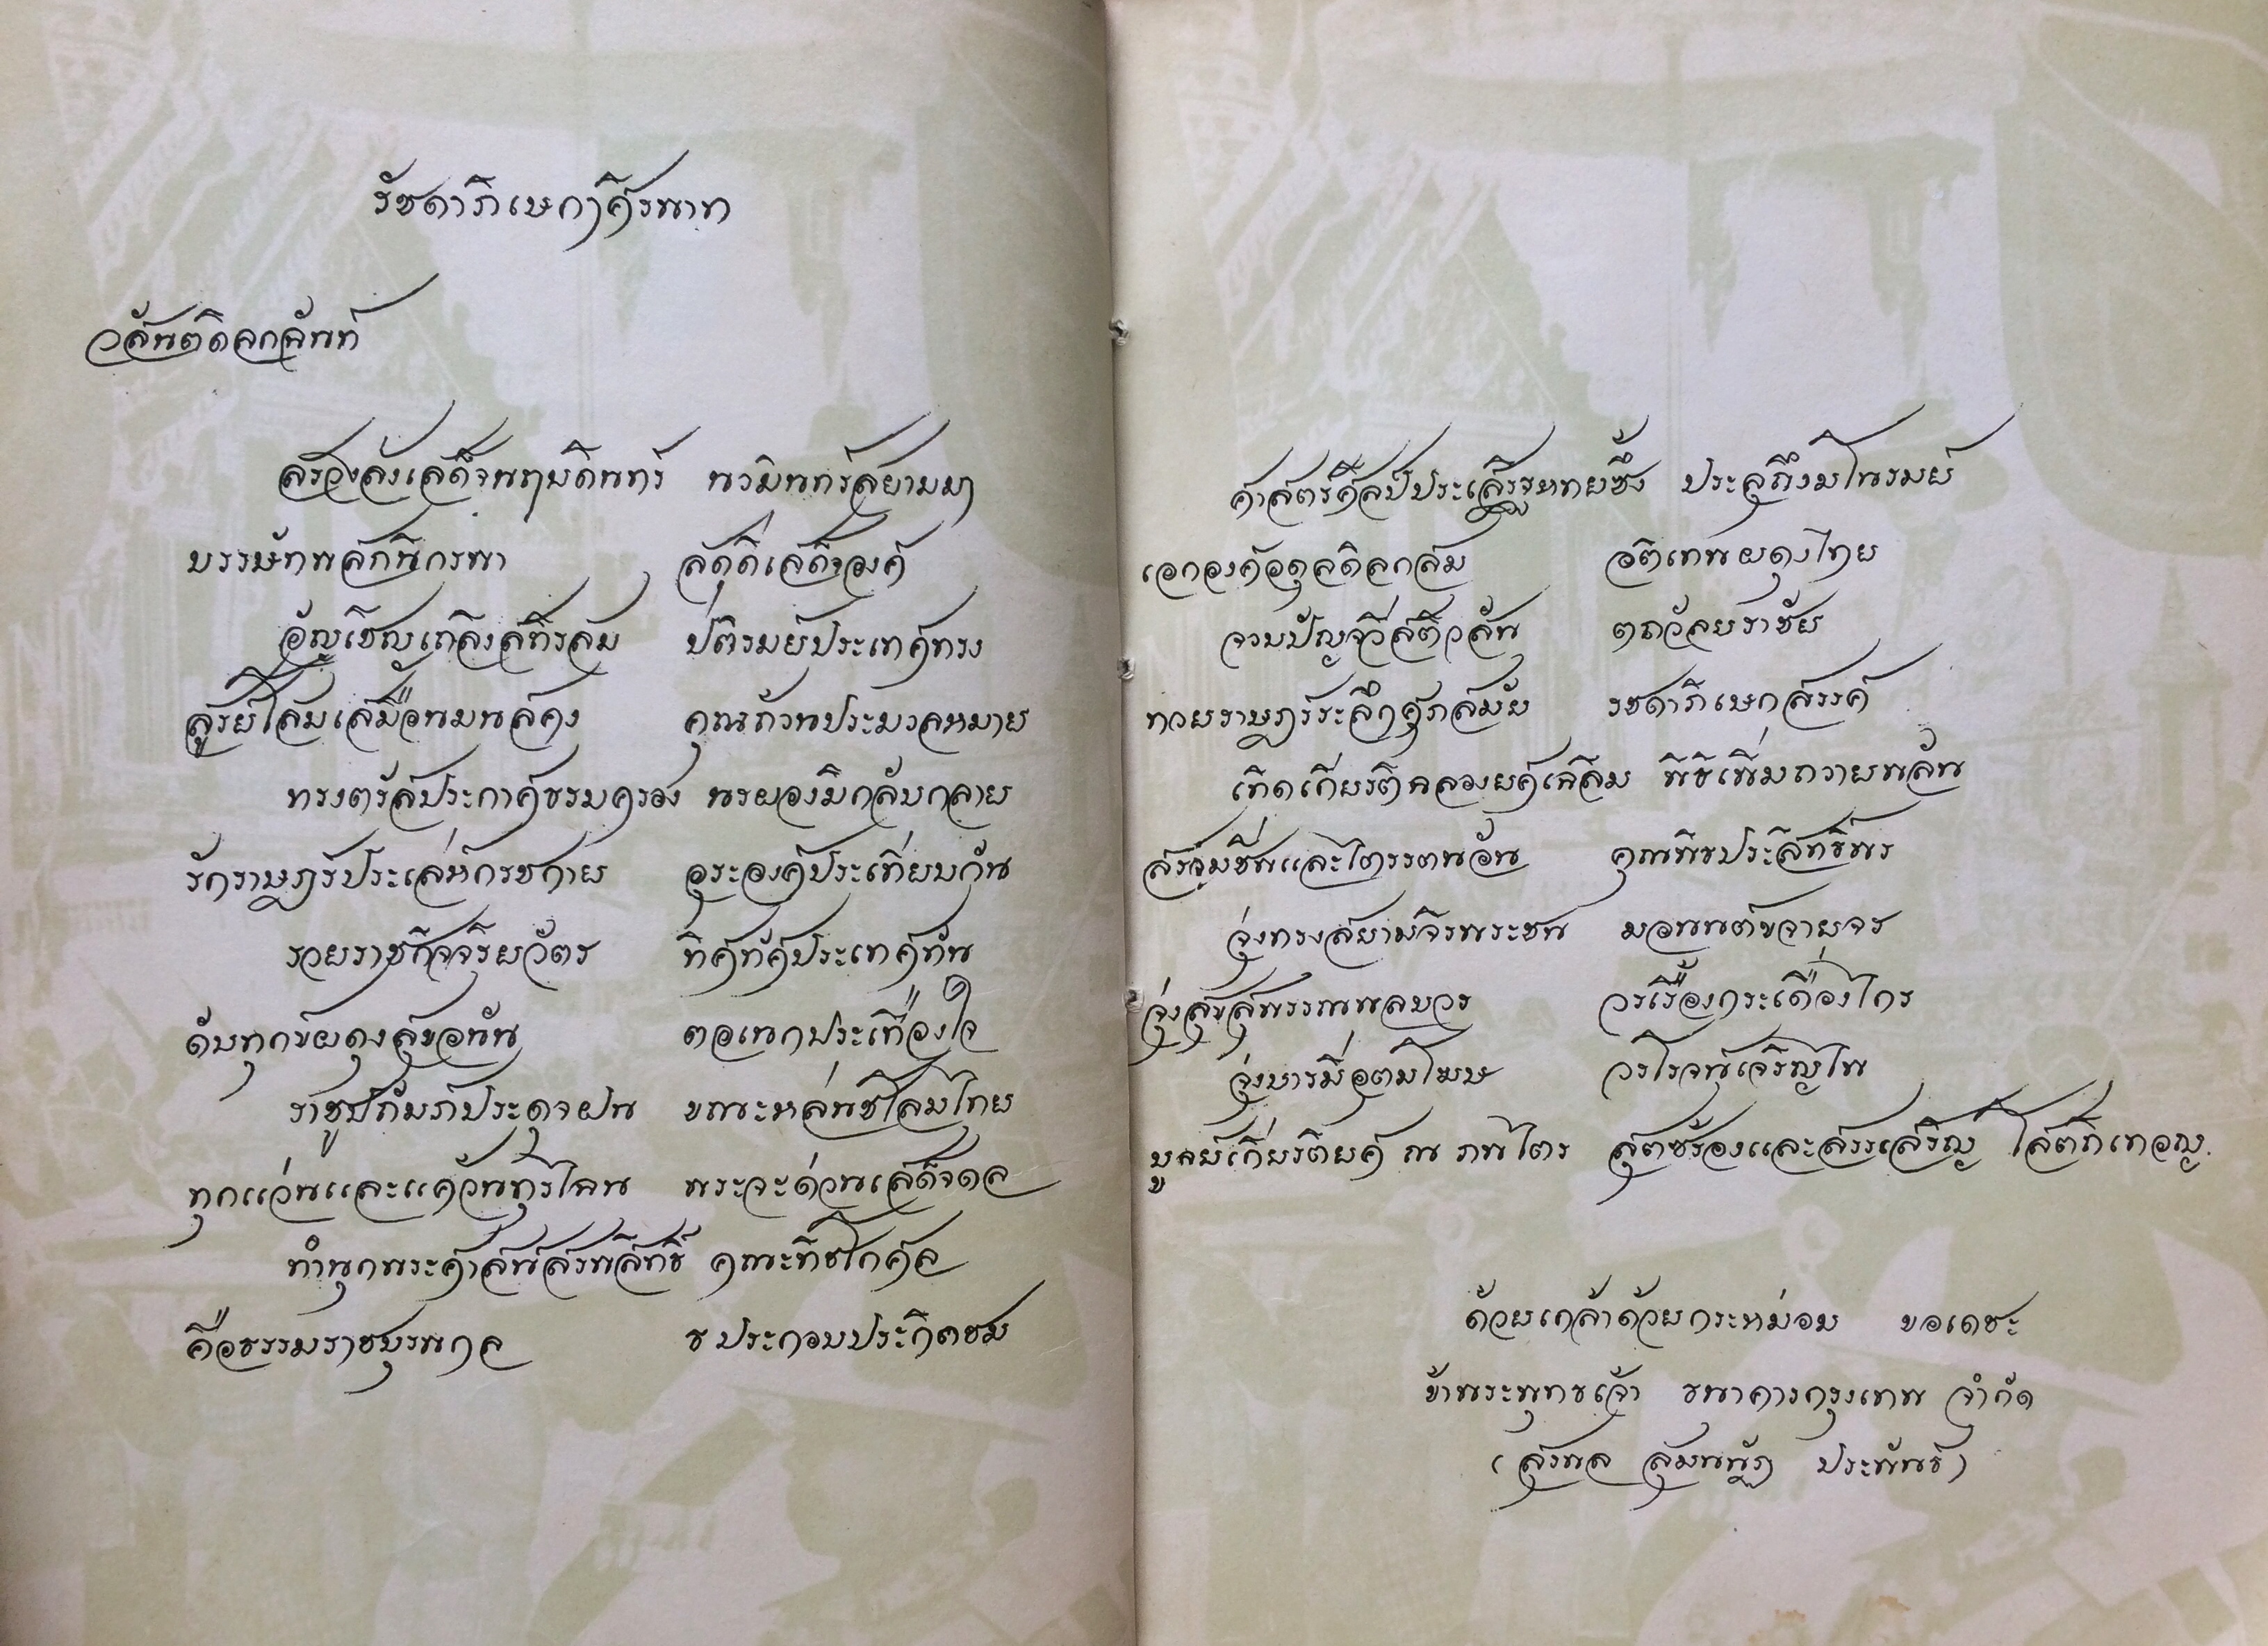 รัชดาภิเษกาศิรพาท
วสันตดิลกฉันท์
สรวงสังเสด็จพฤบดินทร์ นรมินทร์สยามมา
บรรษัทพสกนิกรพา สดุดีเสด็จองค์
อัญเชิญเถลิงสถิรสม ปติรมย์ประเทศทรง
สูรย์โสมเสมือนมนสคง คุณถ้วนประมวลหมาย
ทรงตรัสประกาศธรรมครอง พรยองมิกลับกลาย
รักราษฎร์ประเสห์กรชกาย อุระองค์ประเทียบกัน
รวยราชกิจจริยวัตร ทิศทัศประเทศทัน
ดับทุกข์ผดุงสุขอนันต์ ตอเนกประเทืองใจ
ราชูปถัมภ์ประดุจฝน ขณะหล่นชโลมไทย
ทุกแว่นและแคว้นทุรไฉน พระจะด่วนเสด็จดล
ทำนุกพระศาสน์สรพสิทธิ์ คณะทิชโกศล
คือธรรมราชบุรพกล ธ ประกอบประกิตชม
ศาสตร์ศิลป์ประเสริฐหทยซึ้ง ประลุถึงมโนรมย์
เอกองค์อดุลดิลกสม อติเทพผดุงไทย
จวบปัญจวีสติวสัน ตถวัลยราชัย
ทวยราษฎร์ระลึกศุภสมัย รชดาภิเษกสรรค์
เทิดเกียรติฉลองยศเฉลิม พิธิเพิ่มถวายพลัน
สรวมชีพและไตรรตนอัน คุณพิธประสิทธิ์พร
จุ่งทรงสยามจิรพระชน มอนนต์ขจายจร
จุ่งสุขสุพรรณพลบวร วรเรืองกระเดื่องไกร
จุ่งบารมีอุตมโฆษ วรโรจน์เจริญไพ
บูลย์เกียรติยศ ณ ภพไตร สุตซร้องและสรรเสริญ โสตถิเทอญ.
ด้วยเกล้าด้วยกระหม่อม ขอเดชะ
ข้าพระพุทธเจ้า ธนาคารกรุงเทพ จำกัด
( สุรพล สุมนนัฏ ประพันธ์ )